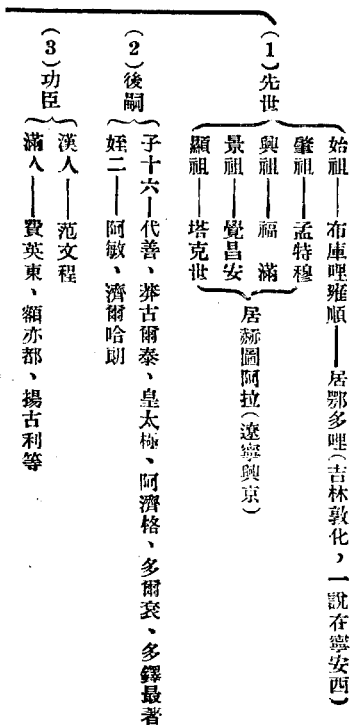 (1)先世
始祖——布庫哩雍順——居鄂多哩(吉林敦化,一說在寧安西)
肇祖——孟特穆
興祖——福滿
景祖——覺昌安
顯祖——塔克世
居赫圖阿拉(遼寧興京)
(2)後嗣
子十六——代善、莽古爾泰、皇太極、阿濟格、多爾袞、多鐸最著
姪二——阿敏、濟爾哈朗
(3)功臣
漢人——范文程
滿人——費英東、額亦都、揚古利等